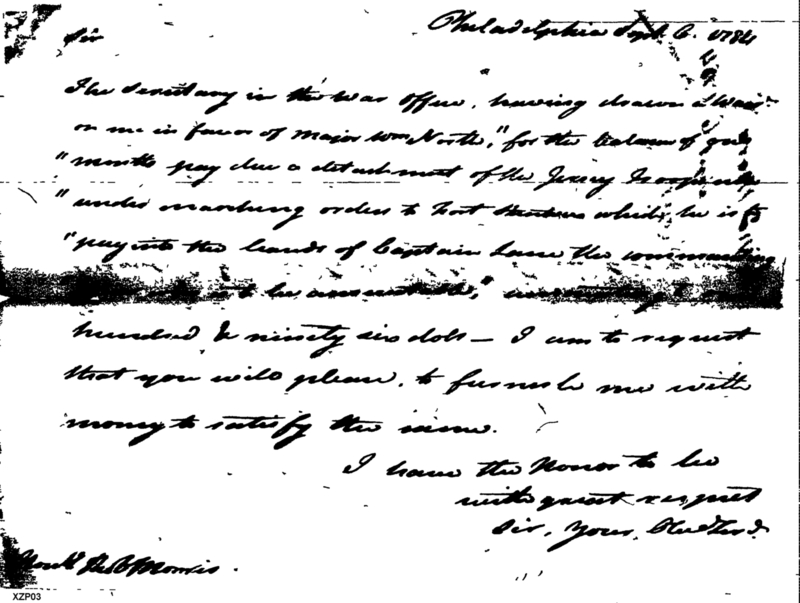 Philadelphia Sept. 6. 1784
Sir
The Secretary in the War office, having drawn a Warrt
on me in favor of Major Wm North, "for the balance of
"months pay due a detachment of the Jersey Troops
"under marching orders to Fort which he is to
"pay into the hands of Captain Lane the commanding
to be accountable,"
hundred & ninety six dolls — I am to request
that you will please, to furnish me with
money to satisfy the same.
I have the Honor to be
with great respect
Sir, Your Obedt Servt
Honble Robt Morris.
XZP03